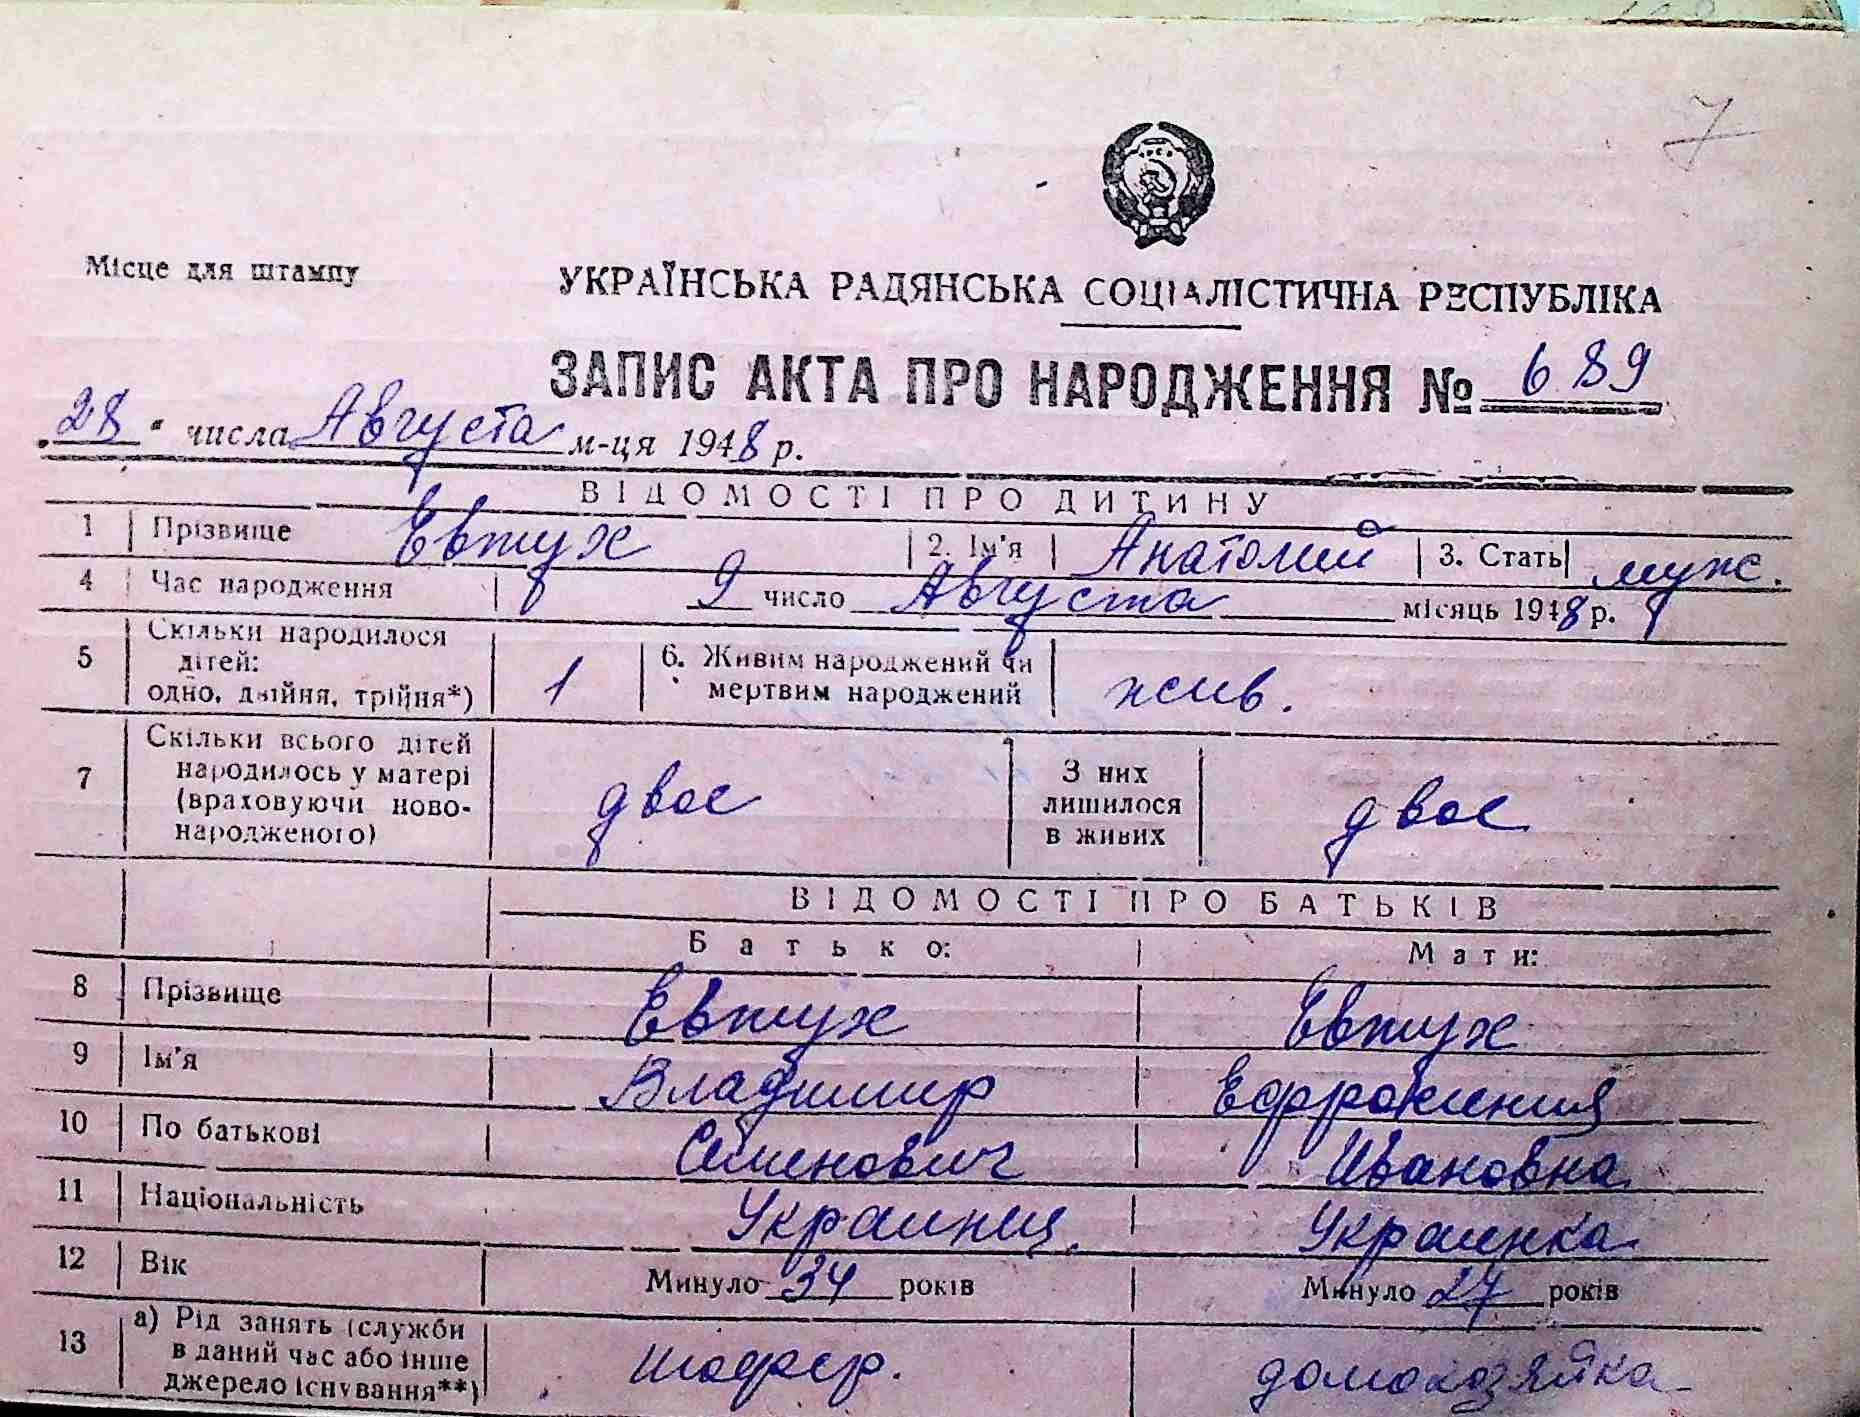 7
Місце для штампу
УКРАЇНСЬКА РАДЯНСЬКА СОЦІАЛІСТИЧНА РЕСПУБЛІКА
ЗАПИС АКТА ПРО НАРОДЖЕННЯ № 689
"28" числа Августа м-ця 1948 р.
ВІДОМОСТІ ПРО ДИТИНУ
1 Прізвище Евтух 2. Ім'я Анатолий 3. Стать муж.
4 Час народження 9 число Августа місяць 1948 р.
5 Скільки народилося
дітей:
одно, двійня, трійня*) 1
6. Живим народжений чи
мертвим народжений жив.
7 Скільки всього дітей
народилось у матері
(враховуючи ново-
народженого) двое
З них
лишилося
в живих двое
ВІДОМОСТІ ПРО БАТЬКІВ
Батько: Мати:
8 Прізвище Евтух Евтух
9 Ім'я Владимир Ефросиния
10 По батькові Семенович Ивановна
11 Національність Украинец. Украинка
12 Вік Минуло 34 років Минуло 27 років
13 а) Рід занять (служби
в даний час або інше
джерело існування**) шофер. домохозяйка